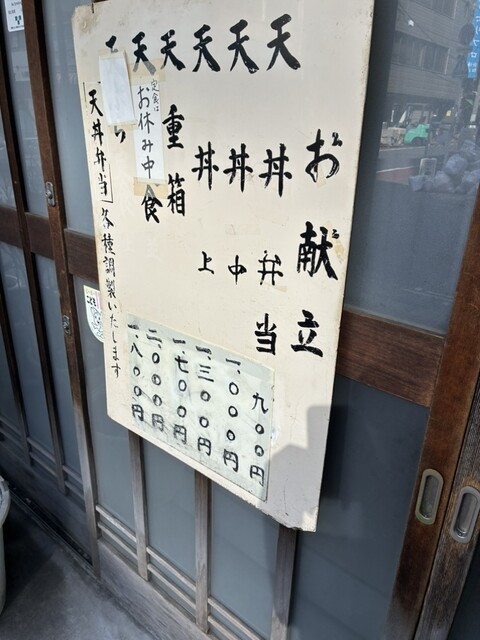 お献立
天丼弁当 九〇〇円
天丼中 一、〇〇〇円
天丼上 一、三〇〇円
天重箱 一、七〇〇円
天 食 二、〇〇〇円
定食は
お休み中
一、八〇〇円
「天丼弁当」各種調製いたします